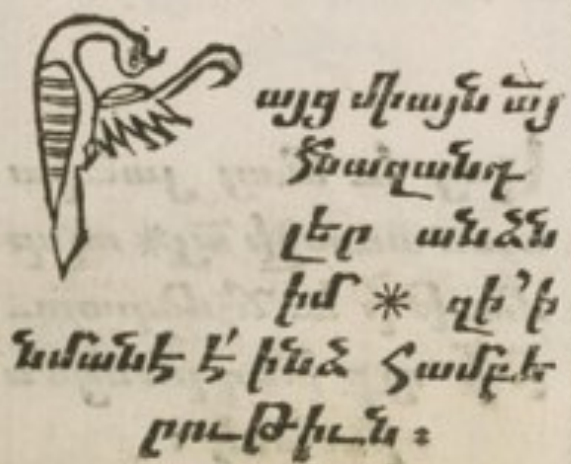 Բայց միայն ա՟յ
հնազանդ
լեր անձն
իմ * զի՚ի
նմանէ է՛ ինձ համբե
րութիւն ։